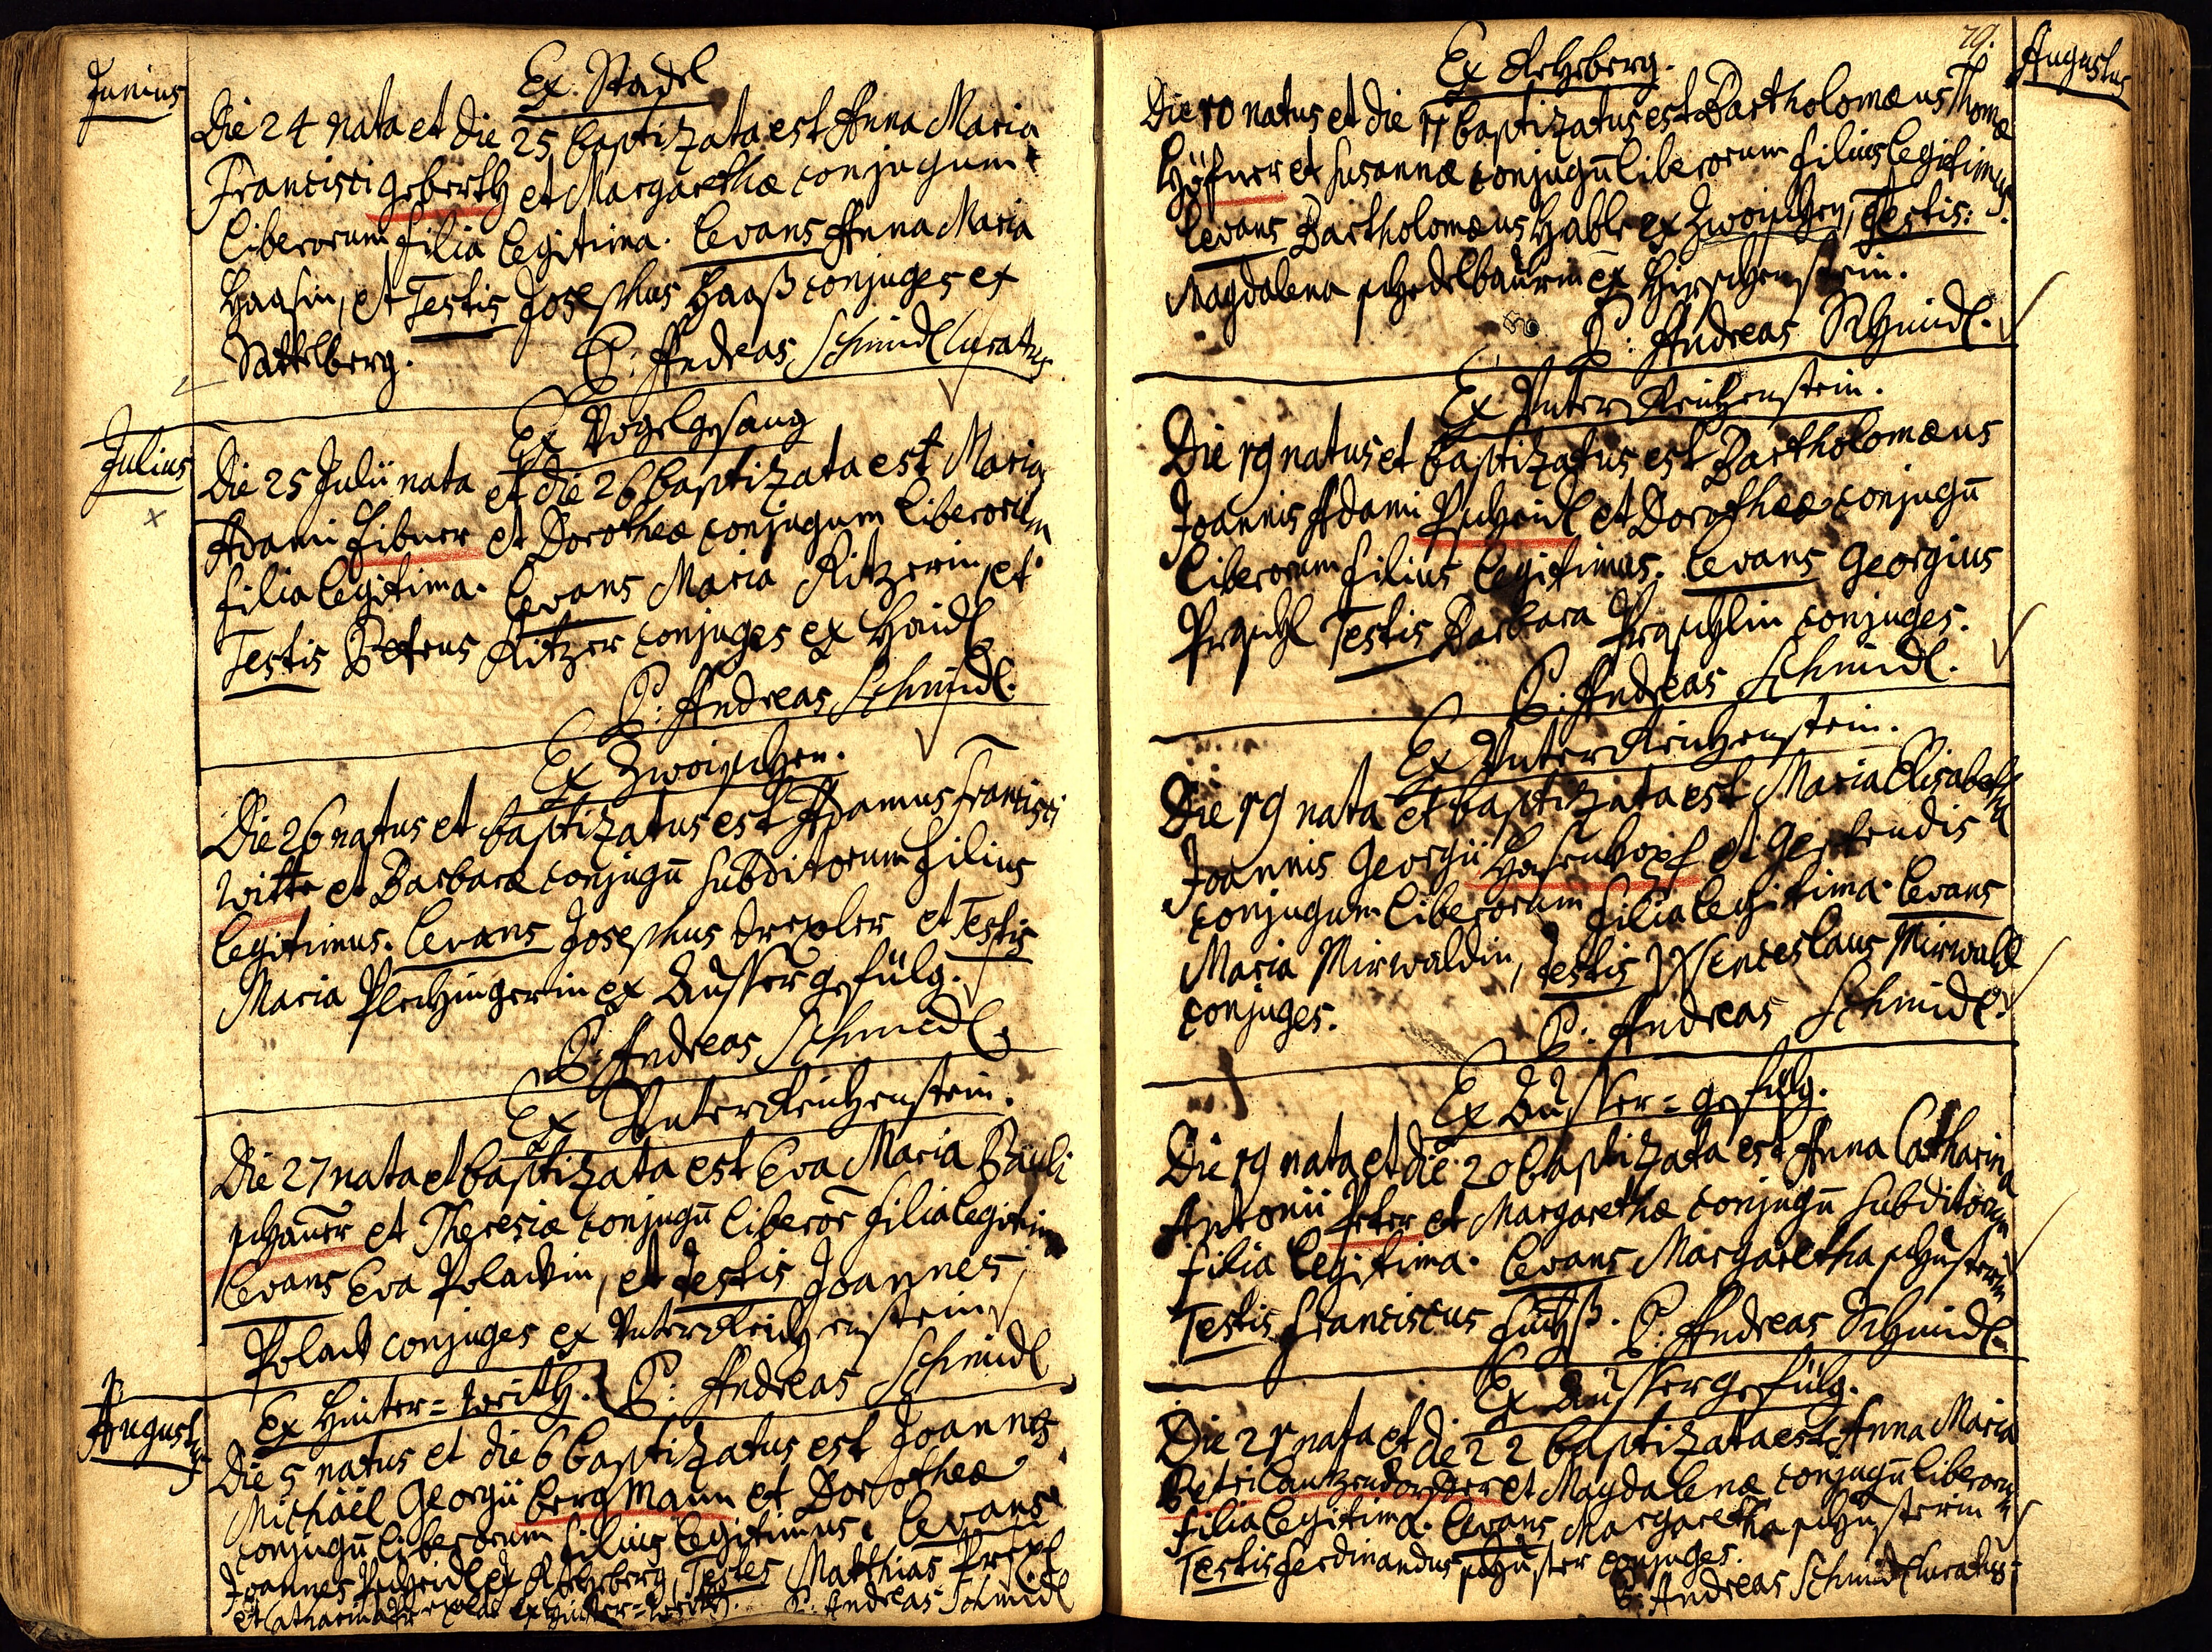 Junius
Ex Stadel
Die 24 nata et die 25 baptizata est Anna Maria
Francisci geberth et Margarethæ conjugum
liberorum filia legitima. Levans Anna Maria
Haasin, et Testis Josephus Haaß conjuges ex
Sattelberg. P: Andreas Schmidl Curatus
Julius
Ex Vogelgesang
Die 25 Julii nata et die 26 baptizata est Maria
Adami Fibner et Dorotheæ conjugum liberorum
filia legitima. Levans Maria Ritzerin, et
Testis Petrus Ritzer conjuges ex Haidl
P: Andreas Schmidl.
Ex Zwoischen.
Die 26 natus et baptizatus est Adamus Francisci
Witte et Barbaræ conjugū subditorum filius
legitimus. Levans Josephus Drexler et Testis
Maria Plechingerin ex Aussergefülg.
P: Andreas Schmidl.
Ex Unterreichenstein.
Die 27 nata et baptizata est Eva Maria Pauli
schauer et Theresiæ conjugū liberor̄ filia legitima
Levans Eva Polackin, et Testis Joannes
Polack conjuges ex Unterreichenstein
P: Andreas Schmidl
Augustus
Ex Hinter=Wirth.
Die 5 natus et die 6 baptizatus est Joannes
Michäel Georgii bergmann et Dorotheæ
conjugū liberorum filius legitimus. Levans
Joannes Pscheidl ex Rehberg, Testes Matthias Drexl
et Catharina ex Hinter=Wirth. P: Andreas Schmidl
79.
Augustus
Ex Rehberg.
Die 10 natus et die 11 baptizatus est Bartholomæus Thomæ
Höfner et Susannæ conjugū liberorum filius legitimus
Levans Bartholomæus Hable ex Zwoischen, Testis:
Magdalena schedelbaurin ex Hirschenstein.
P: Andreas Schmidl.
Ex Unterreichenstein.
Die 19 natus et baptizatus est Bartholomæus
Joannis Adami Pscheidl et Dorotheæ conjugū
liberorum filius legitimus. Levans Georgius
Praschl Testis Barbara Praschlin conjuges.
P: Andreas Schmidl.
Ex Unterreichenstein.
Die 19 nata et baptizata est Maria Elisabetha
Joannis Georgii Hasenkopf et Gertrudis
conjugum liberorum filia legitima. Levans
Maria Mirwaldin, Testis Wenceslaus Mirwald
conjuges.
P: Andreas Schmidl.
Ex Ausser=gefülg.
Die 19 nata et die 20 baptizata est Anna Catharina
Antonii Peter et Margarethæ conjugū subditorum
filia legitima. Levans Margaretha schusterin
Testis Franciscus Fuchß. P: Andreas Schmidl.
Ex Aussergefülg.
Die 21 nata et die 22 baptizata est Anna Maria
Petri Lantzendörffer et Magdalenæ conjugū liberorum
filia legitima. Levans Margaretha schusterin
Testis Ferdinandus schuster conjuges.
P: Andreas Schmidl Curatus